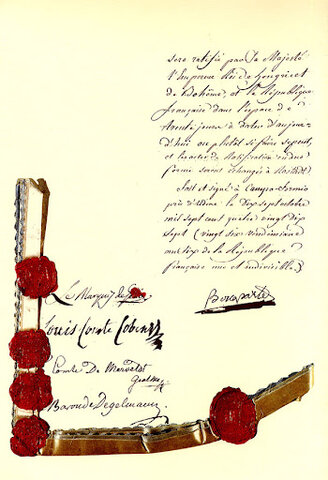 sera ratifié par sa Majesté
l'Empereur Roi de hongrie et
de Bohême, et la République
française dans l'espace de
trente jours à dater d'aujour
d'hui ou plutôt si faire se peut,
et les actes de Ratification en due
forme seront échangés à Rastadt.
fait et signé à Campo-formio
près d'Udine le Dix sept octobre
mil sept cent quatre vingt Dix
sept (vingt six vendémiaire
an six de la République
française une et indivisible)
Le Marquis de
Bonaparte
Louis Comte Cobenzl
Comte De Merveldt
Baron de Degelmann